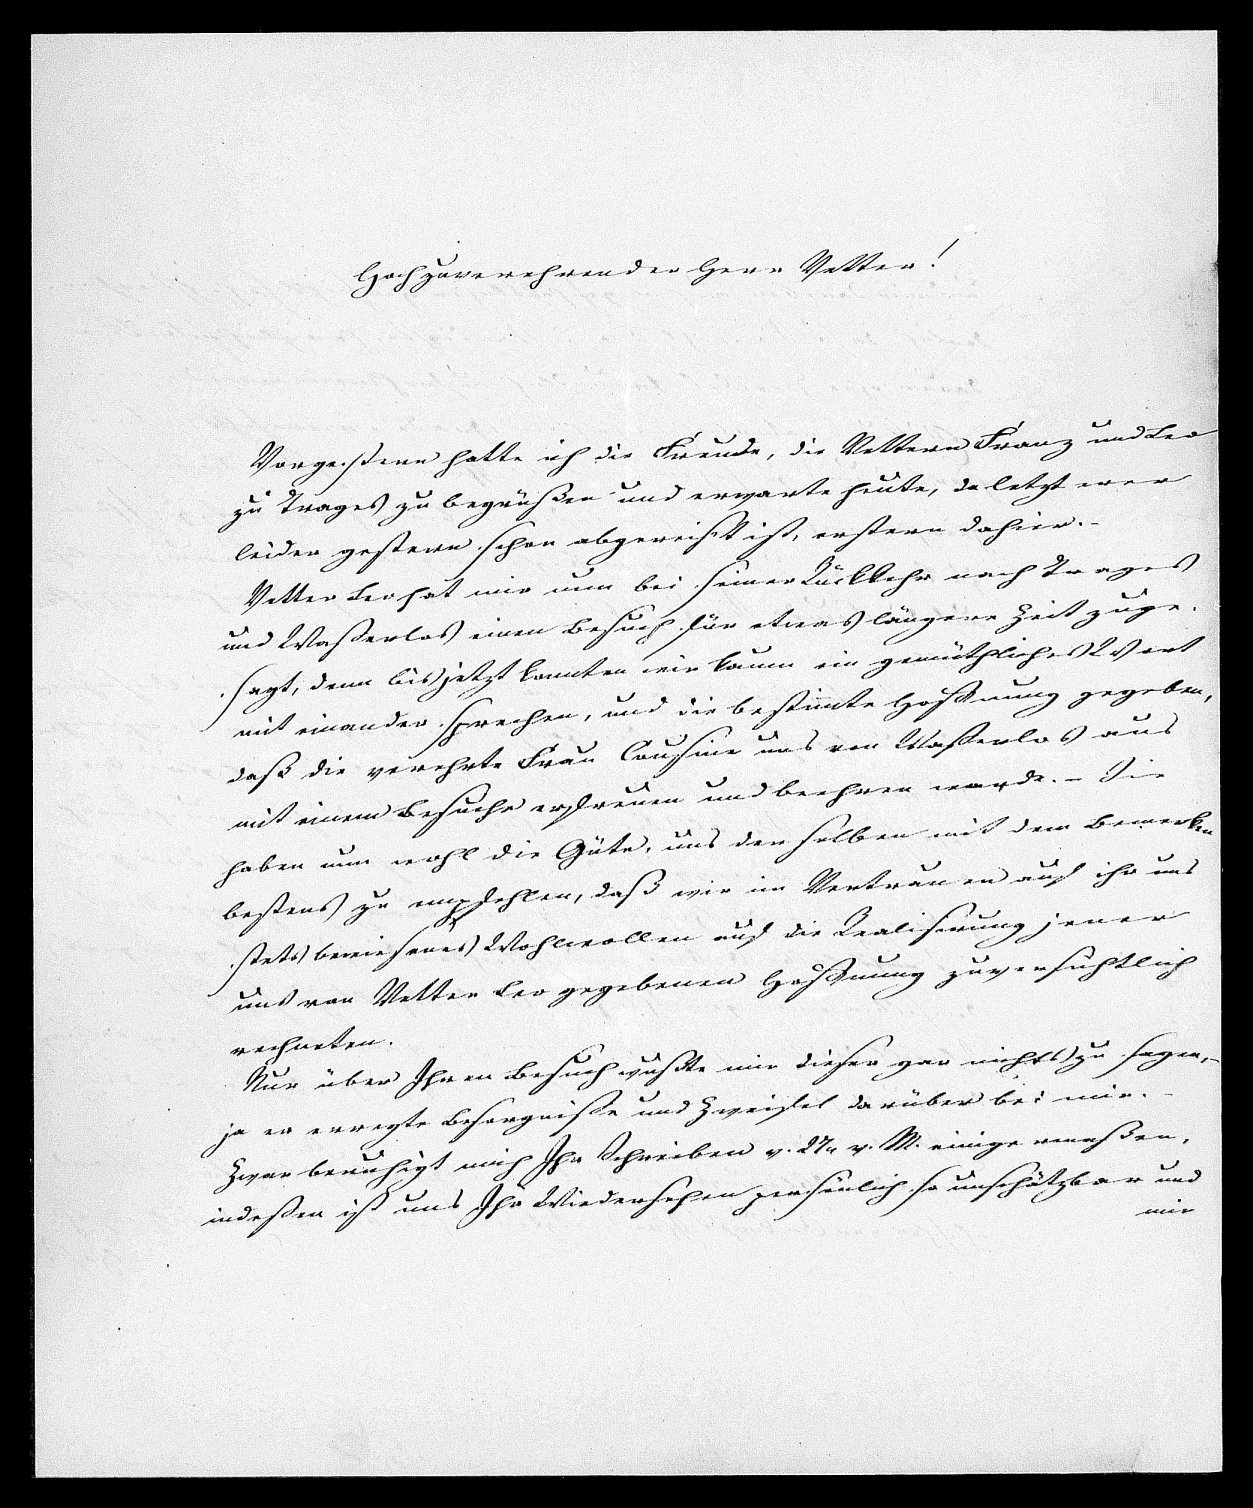 Hochzuverehrender Herr Vetter!
Vorgestern hatte ich die Freude, die Vettern Franz und Leo
zu Trages zu begrüßen und erwarte heute, da letzterer
leider gestern schon abgereißt ist, erstern dahier.-
Vetter Leo hat mir nun bei seiner Rückkehr nach Trages
und Waßerlos einen Besuch für etwas längere Zeit zuge-
sagt, denn bis jetzt konnten wir kaum ein gemüthliches Wort
mit einander sprechen, und die bestimmte Hoffnung gegeben,
daß die verehrte Frau Cousine uns von Waßerlos aus
mit einem Besuche erfreuen und beehren werde.- Sie
haben nun wohl die Güte, uns derselben mit dem Bemerken
bestens zu empfehlen, daß wir im Vertrauen auf ihr uns
stets bewiesenes Wohlwollen auf die Realisirung jener
uns von Vetter Leo gegebenen Hoffnung zuversichtlich
rechneten.
Nur über Ihren Besuch wußte mir dieser gar nichts zu sagen,-
ja er erregte Besorgniße und Zweifel darüber bei mir.-
Zwar beruhigt mich Ihr Schreiben v. v. M. einigermaßen,
indeßen ist uns Ihr Wiedersehen persönlich so unschätzbar und
mir